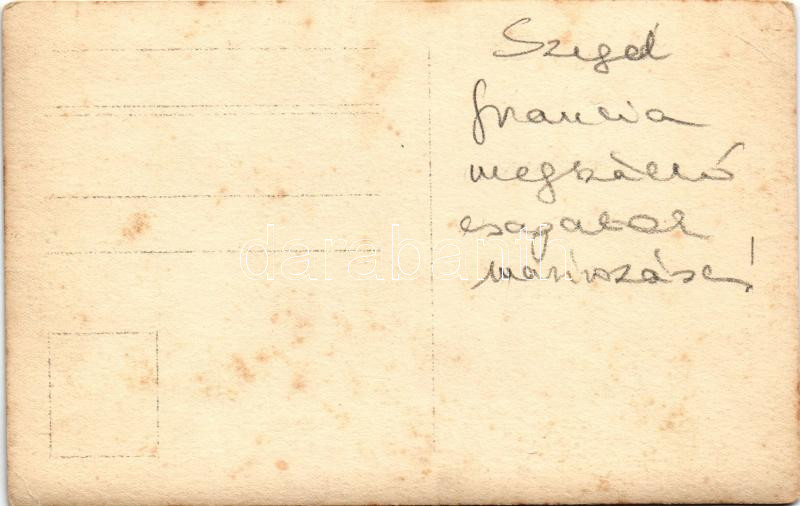 Szeged
francia
megszálló
csapatok
masirozása!
darabanth